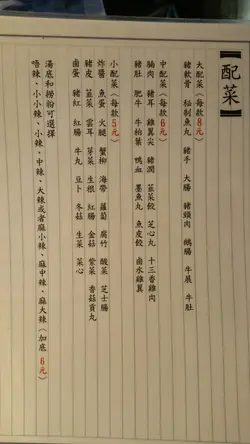 【配菜】
大配菜（每款8元）
豬軟骨 秘制魚丸 豬手 大腸 豬頸肉 鵝腸 牛展 牛肚
中配菜（每款6元）
腩肉 豬耳 雞翼尖 豬潤 韮菜餃 芝心丸 十三香雞肉
豬肚 肥牛 牛柏葉 鴨血 墨魚丸 魚皮餃 鹵水雞翼
小配菜（每款5元）
炸醬 魚蛋 火腿 蟹柳 海帶 蘿蔔 腐竹 酸菜 芝士腸
豬皮 韮菜 雲耳 芽菜 生根 紅腸 金菇 紫菜 香菇貢丸
鹵蛋 豬紅 紅腸 牛丸 豆卜 冬菇 生菜 菜心
湯底和撈粉可選擇
唔辣、小小辣、小辣、中辣、大辣或者麻小辣、麻中辣、麻大辣（加底6元）